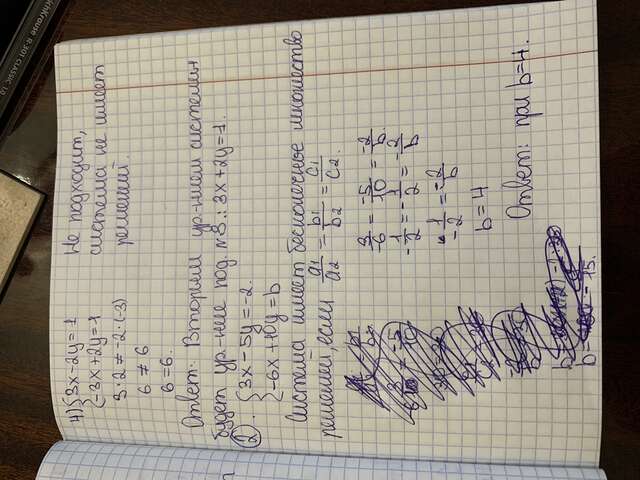 4) {3x-2y=1
{-3x+2y=1
3·2≠-2·(-3)
6≠6
6=6
Не подходит,
система не имеет
решений.
Ответ: Вторым ур-нием системы
будет ур-ние под №3: 3x+2y=1.
2. {3x-5y=-2
{-6x+10y=b
Система имеет бесконечное множество
решений, если a₁/a₂ = b₁/b₂ = c₁/c₂.
3/-6 = -5/10 = -2/b
-1/2 = -1/2 = -2/b
1/-2 = -2/b
b=4
Ответ: при b=4.